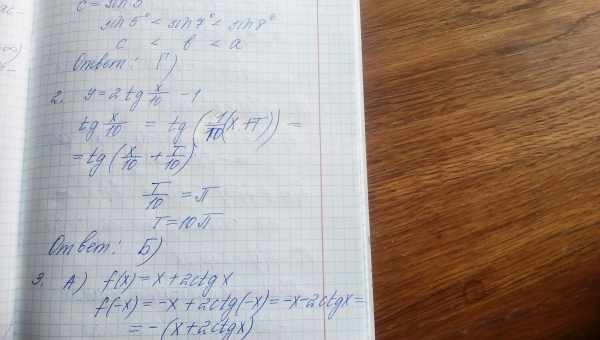 c = sin 5°
sin 5° < sin 7° < sin 8°
c < b < a
Ответ: Г)
2. y = 2 tg x/10 - 1
tg x/10 = tg (1/10 (x + T)) =
= tg (x/10 + T/10)
T/10 = π
T = 10π
Ответ: Б)
3. А) f(x) = x + 2ctg x
f(-x) = -x + 2ctg(-x) = -x - 2ctgx =
= - (x + 2ctgx)